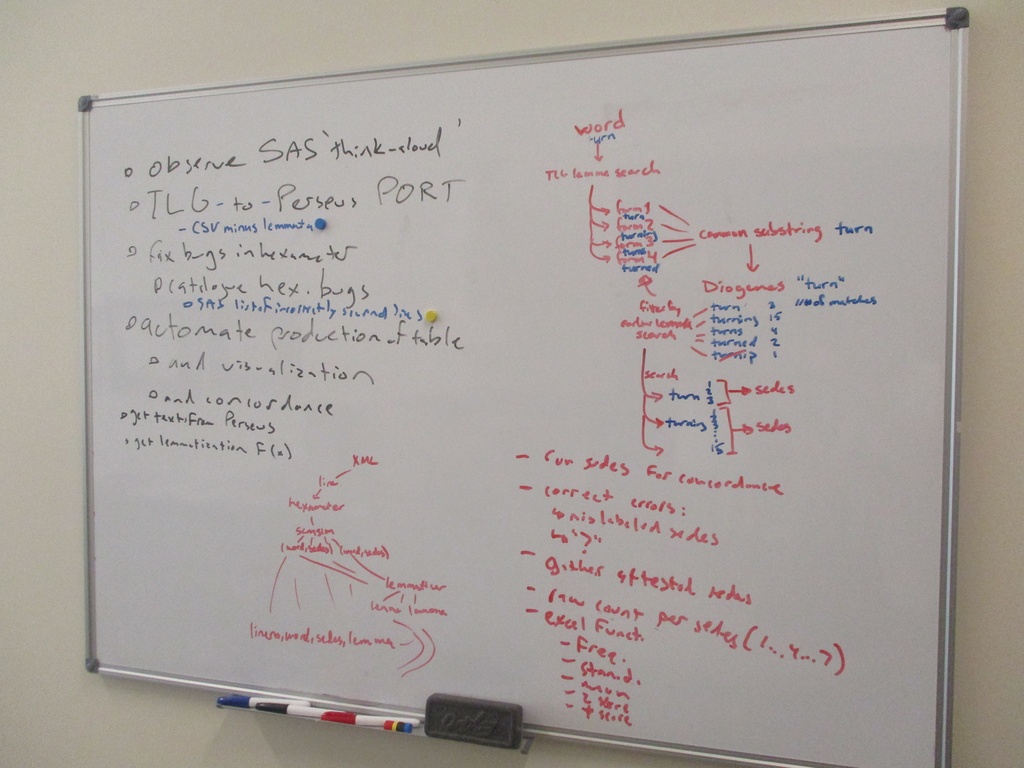 • observe SAS 'think-aloud'
• TLG-to-Perseus PORT
- CSV minus lemmata
• fix bugs in hexameter
catalogue hex. bugs
• SAS list of incorrectly scanned lines
• automate production of table
• and visualization
• and concordance
• get texts from Perseus
• get lemmatization F(x)
XML
line
hexameter
scansion
(word, sedes) (word, sedes)
lemmatizer
lemma lemma
lineno, word, sedes, lemma
word
turn
TLG lemma search
form 1
turn
form 2
turning
form 3
turns
form 4
turned
common substring turn
Diogenes "turn"
# of matches
filter by
search
turn 2
turning 15
turns 4
turned 2
turnip 1
search
turn 1
2
sedes
turning 1
2
3
15
sedes
- run sedes for concordance
- correct errors:
↳ mislabeled sedes
↳ "?"
- gather attested sedes
- raw count per sedes (1... 4...?)
- excel funct.
- Freq.
- stan.d.
- mean
- z score